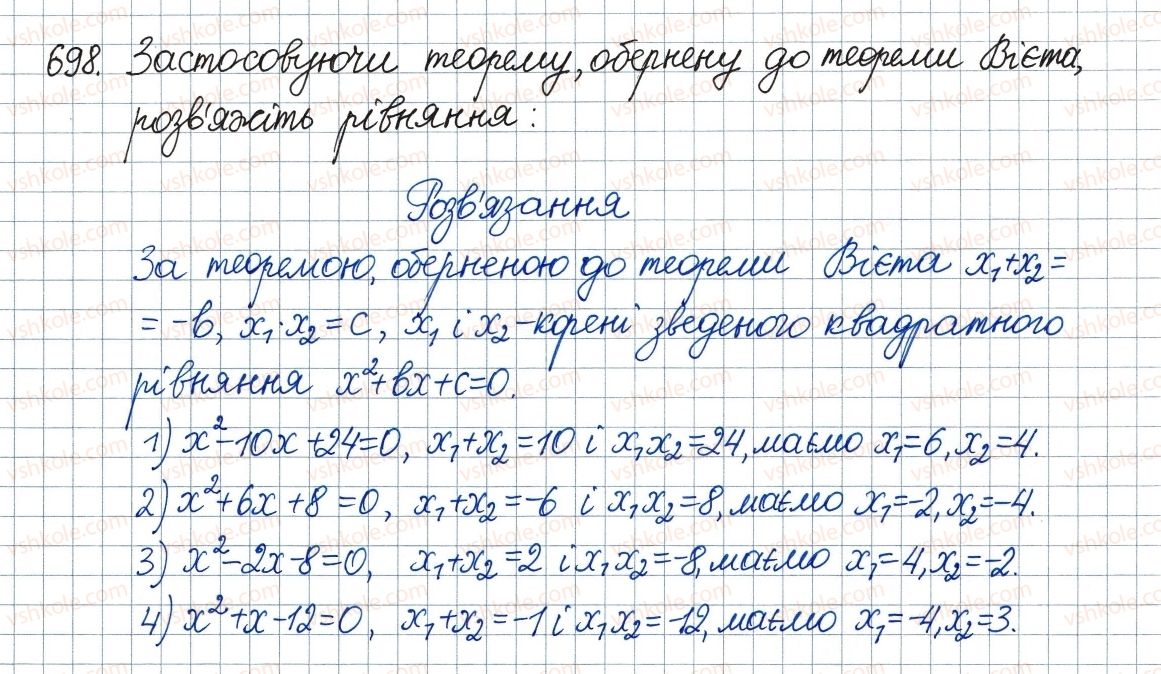 698. Застосовуючи теорему, обернену до теореми Вієта,
розв'яжіть рівняння:
Розв'язання
За теоремою, оберненою до теореми Вієта x₁+x₂=
= -b, x₁·x₂=c, x₁ і x₂-корені зведеного квадратного
рівняння x²+bx+c=0.
1) x²-10x+24=0, x₁+x₂=10 і x₁x₂=24, маємо x₁=6, x₂=4.
2) x²+6x+8=0, x₁+x₂=-6 і x₁x₂=8, маємо x₁=-2, x₂=-4.
3) x²-2x-8=0, x₁+x₂=2 і x₁x₂=-8, маємо x₁=4, x₂=-2.
4) x²+x-12=0, x₁+x₂=-1 і x₁x₂=-12, маємо x₁=-4, x₂=3.